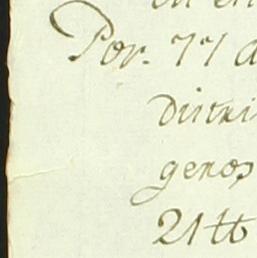 Por. 77 a
Distri
geros
21 tt